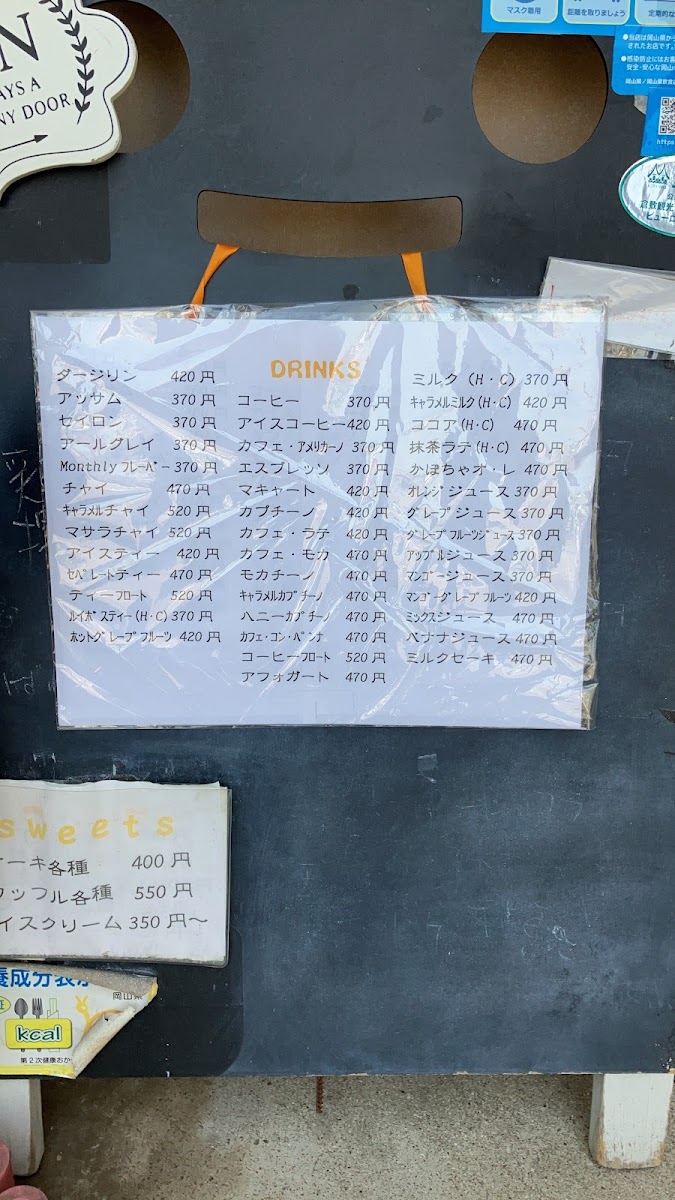 N
AYS A
NY DOOR
マスク着用
距離を取りましょう
定期的な
●当店は岡山県から
されたお店です。
●感染防止にはお客
安全・安心な岡山
岡山県/岡山県飲食店
https
倉敷観光
ビューロ
DRINKS
ダージリン 420円
アッサム 370円
セイロン 370円
アールグレイ 370円
Monthlyフレーバー 370円
チャイ 470円
キャラメルチャイ 520円
マサラチャイ 520円
アイスティー 420円
セパレートティー 470円
ティーフロート 520円
ルイボスティー(H・C) 370円
ホットグレープフルーツ 420円
コーヒー 370円
アイスコーヒー 420円
カフェ・アメリカーノ 370円
エスプレッソ 370円
マキャート 420円
カプチーノ 420円
カフェ・ラテ 420円
カフェ・モカ 470円
モカチーノ 470円
キャラメルカプチーノ 470円
ハニーカプチーノ 470円
カフェ・コン・パンナ 470円
コーヒーフロート 520円
アフォガート 470円
ミルク(H・C) 370円
キャラメルミルク(H・C) 420円
ココア(H・C) 470円
抹茶ラテ(H・C) 470円
かぼちゃオ・レ 470円
オレンジジュース 370円
グレープジュース 370円
グレープフルーツジュース 370円
アップルジュース 370円
マンゴージュース 370円
マンゴーグレープフルーツ 420円
ミックスジュース 470円
バナナジュース 470円
ミルクセーキ 470円
sweets
ーキ各種 400円
ワッフル各種 550円
イスクリーム 350円〜
養成分表
岡山県
kcal
第2次健康おか